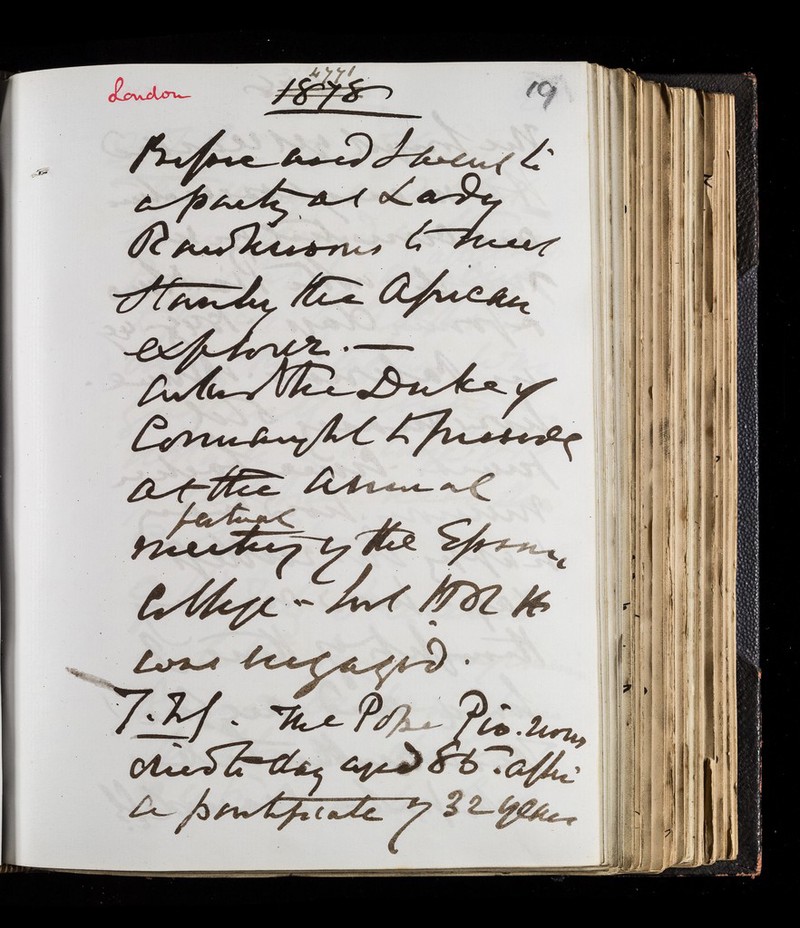 4771
London 1878 19
Before and I went to
a party at Lady
Rawlinsons to meet
Stanley the African
explorer. —
Asked the Duke of
Connaught to preside
at the Annual
festival
meeting of the Epsom
College - but HRH
was engaged.
7. Feb. The Pope Pio. Nono
died to day aged 86. after
a pontificate of 32 years